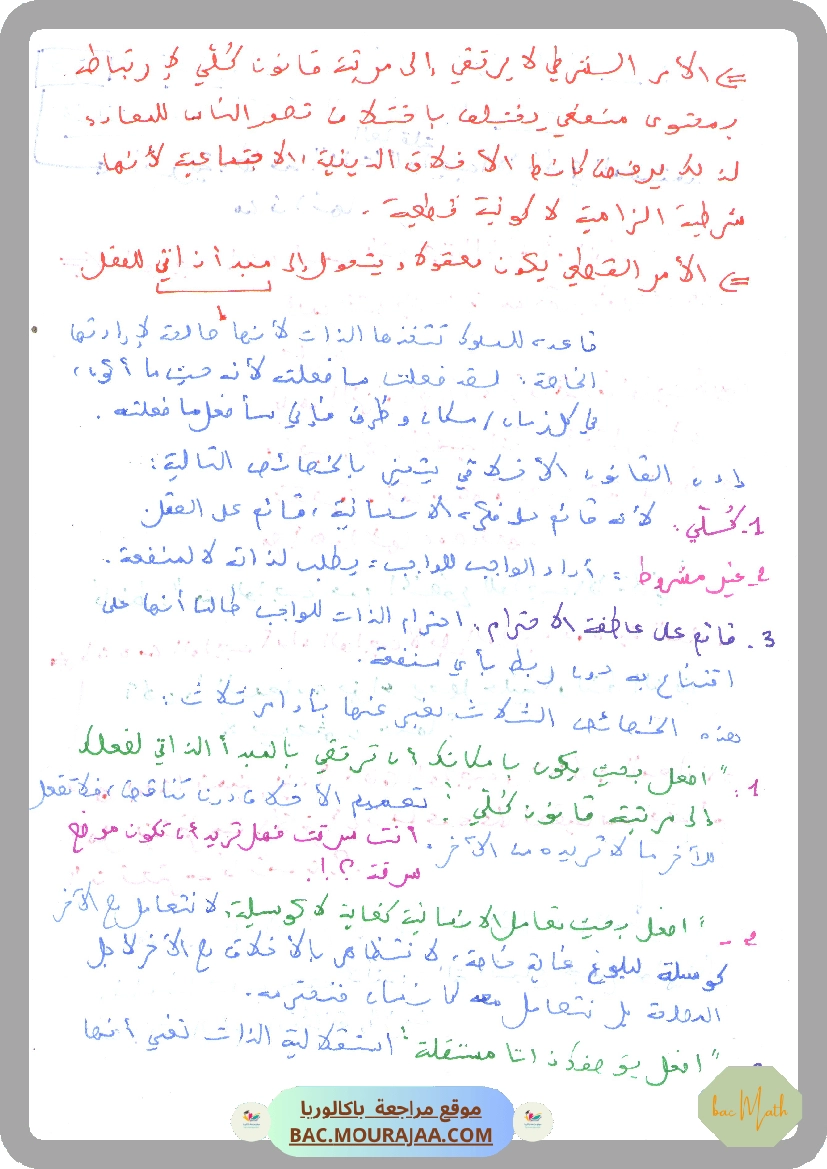 ⇐ الأمر الشرطي لا يرتقي إلى مرتبة قانون كُلّي لإرتباطه
بمحتوى منفعي يختلف باختلاف تصور الناس للسعادة
لذلك يرفض كانط الأخلاق الدينية، الاجتماعية لأنها
شرطية الزامية لا كونية قطعية.
⇐ الأمر القطعي يكون معقولا ويتحول إلى مبدأ ذاتي للعقل
قاعدة للسلوك تتخذها الذات لأنها صالحة لإرادتها
الخاصة: لقد فعلت ما فعلته لأنه حيث ما أكون،
في كل زمان / مكان و ظرف فإني سأفعل ما فعلته.
إذن القانون الأخلاقي يتميز بالخصائص التالية:
1-كُلّي: لأنه قائم على فكرة الإنسانية، قائم على العقل
2-غير مشروط = أداء الواجب للواجب = يطلب لذاته لا لمنفعة.
3. قائم على عاطفة الاحترام: احترام الذات للواجب طالما أنها على
اقتناع به دون ربط بأي منفعة.
هذه الخصائص الثلاث نعبر عنها بأوامر ثلاث:
1. "افعل بحيث يكون بإمكانك أن ترتقي بالمبدأ الذاتي لفعلك
إلى مرتبة قانون كُلّي": تعميم الأخلاق دون تناقض، فلا تفعل
للآخر ما لا تريده من الآخر. أنت سرقت فهل تريد أن تكون موضع
سرقة؟!.
2- "افعل بحيث تعامل الإنسانية كغاية لا كوسيلة، لا نتعامل مع الآخر
كوسيلة لبلوغ غاية خاصة، لا نتظاهر بالأخلاق مع الآخر لأجل
المصلحة بل نتعامل معه كإنسان فنحترمه.
"افعل بوصفك ذاتا مستقلة": استقلالية الذات تعني أنها
موقع مراجعة باكالوريا
BAC.MOURAJAA.COM
bac Math